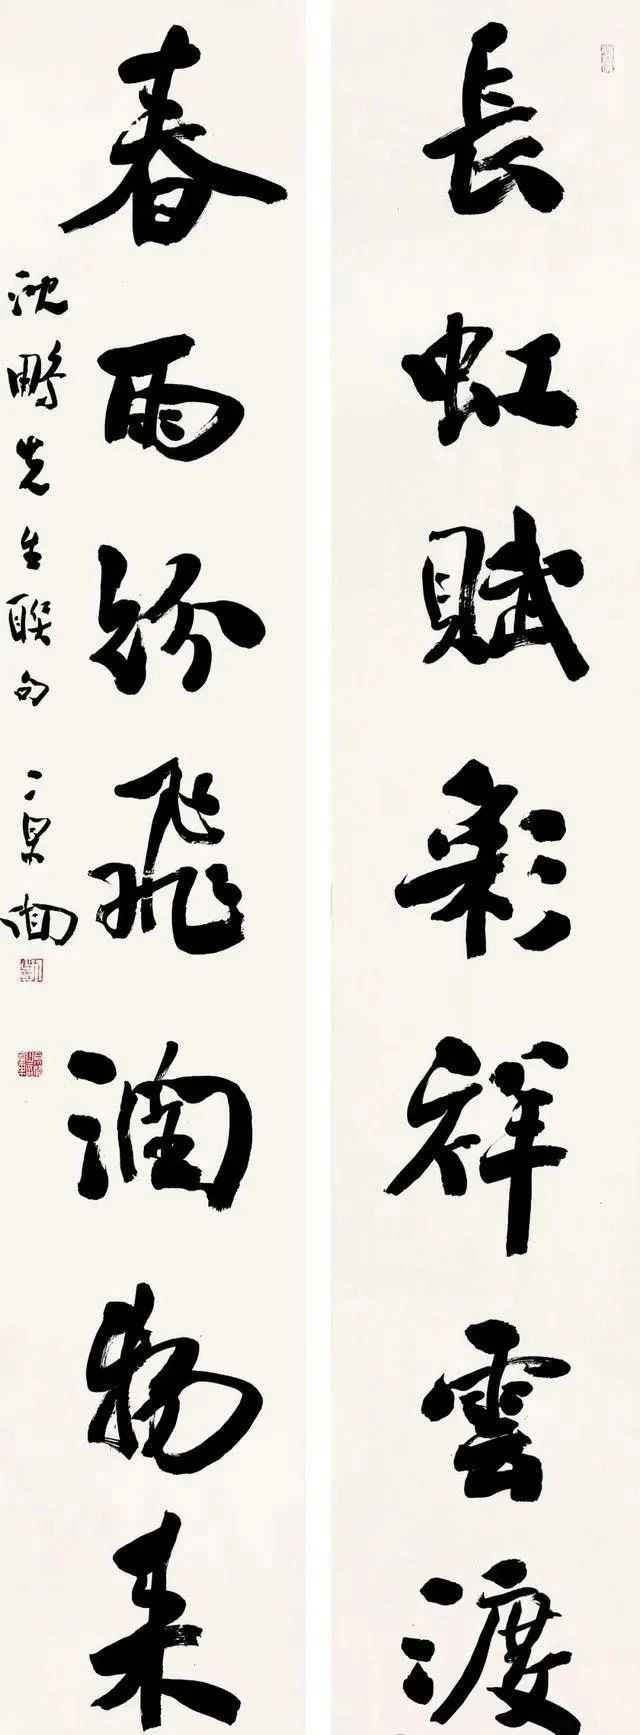 長虹賦彩祥雲渡
春雨紛飛潤物来
沈鵬先生聯句